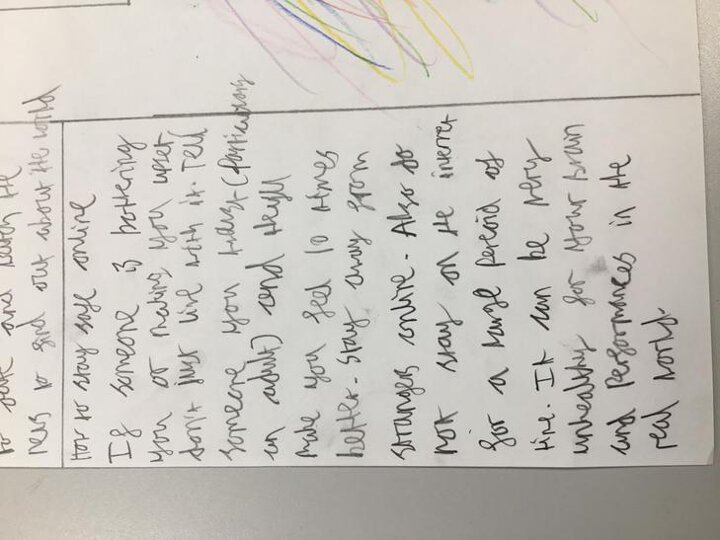 and watch the
news to find out about the world
How to stay safe online
If someone is bothering
you or making you upset
don't just live with it. Tell
someone you trust (particulary
an adult) and they'll
make you feel 10 times
better. Stay away from
strangers online. Also do
not stay on the internet
for a large period of
time. It can be very
unhealthy for your brain
and performances in the
real world.